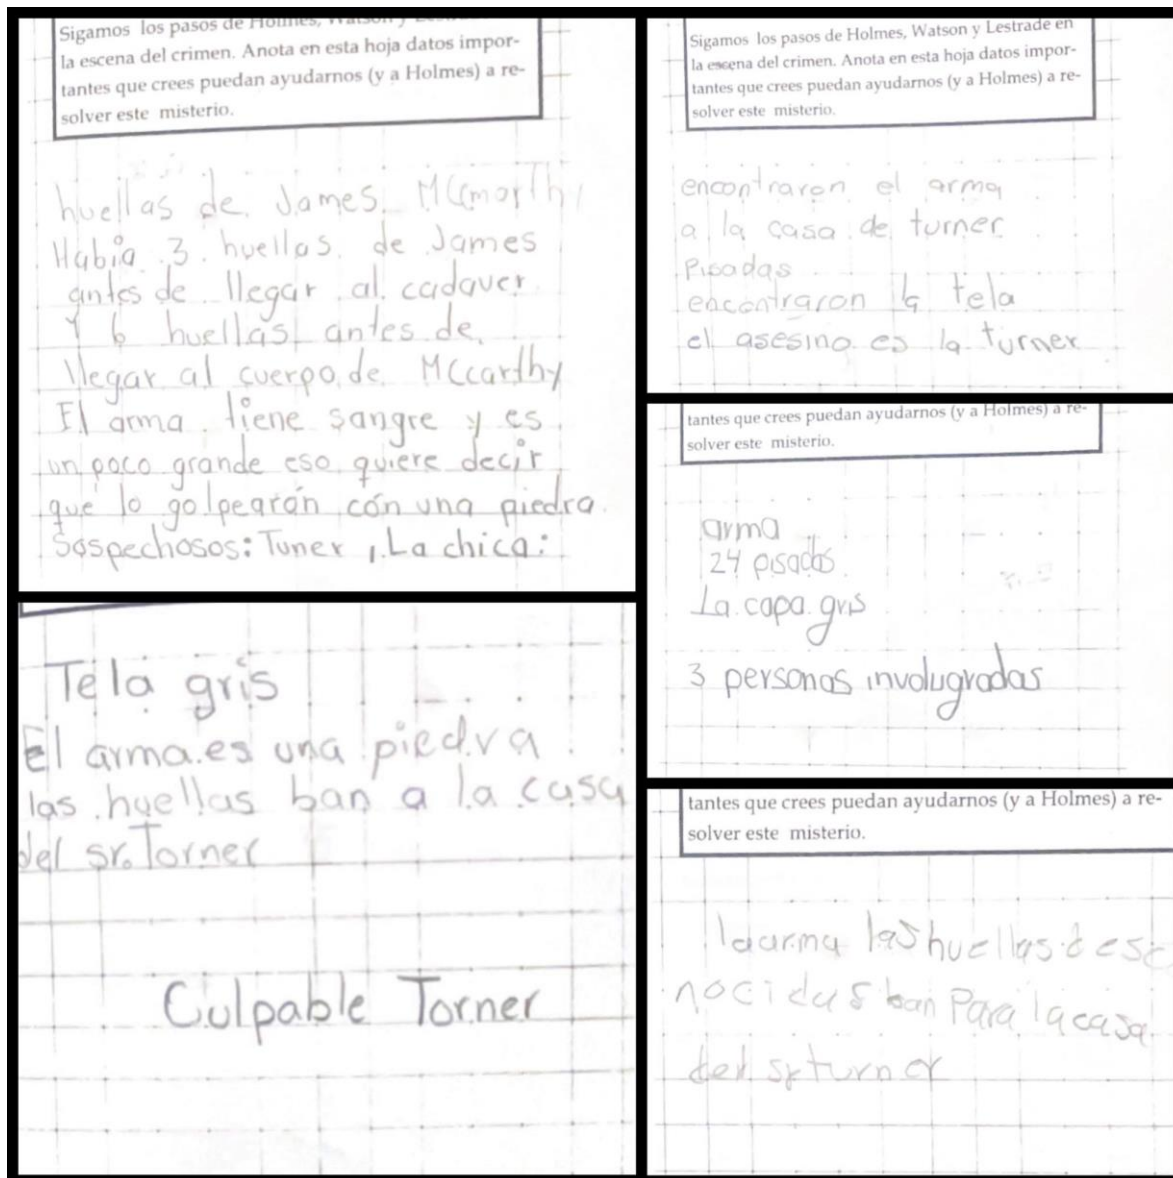 Sigamos los pasos de Holmes, Watson y
la escena del crimen. Anota en esta hoja datos impor-
tantes que crees puedan ayudarnos (y a Holmes) a re-
solver este misterio.
huellas de James McCmorthy
Había 3 huellas de James
antes de llegar al cadaver
Y 6 huellas antes de
llegar al cuerpo de McCarthy
El arma tiene sangre y es
un poco grande eso quiere decir
que lo golpearón con una piedra
Sospechosos: Tuner, La chica:
Tela gris
El arma es una piedra
las huellas ban a la casa
del sr. Torner
Culpable Torner
Sigamos los pasos de Holmes, Watson y Lestrade en
la escena del crimen. Anota en esta hoja datos impor-
tantes que crees puedan ayudarnos (y a Holmes) a re-
solver este misterio.
encontraron el arma
a la casa de turner
Pisadas
encontraron la tela
el asesino es la turner
tantes que crees puedan ayudarnos (y a Holmes) a re-
solver este misterio.
arma
24 pisadas
La capa gris
3 personas involugradas
tantes que crees puedan ayudarnos (y a Holmes) a re-
solver este misterio.
la arma las huellas desc
nocidas ban Para la casa
del sr turner